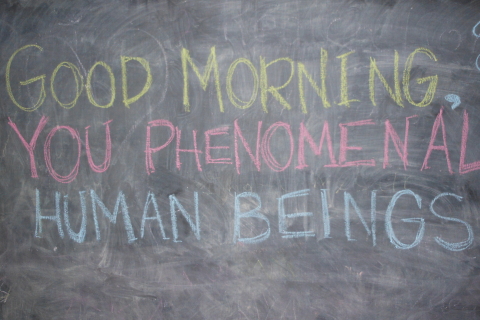 GOOD MORNING,
YOU PHENOMENAL
HUMAN BEINGS